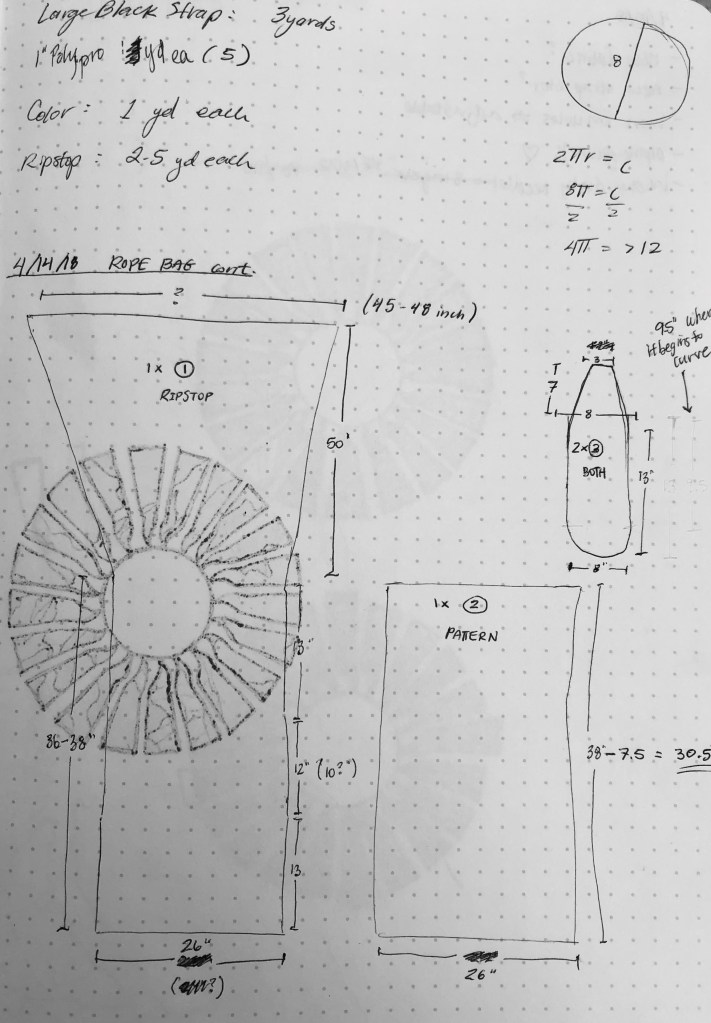 Large Black Strap: 3 yards
1" Polypro yd ea (5)
Color: 1 yd each
Ripstop: 2-5 yd each
8
2πr = C
8π = C
2 2
4π = >12
4/14/18 ROPE BAG cont.
?
(45-48 inch)
1x ①
RIPSTOP
50"
36-38"
13"
12" (10?")
13
26"
9.5" where
it begins to
curve
3
7
8
2x ③
BOTH
13"
8"
1x ②
PATTERN
38"-7.5 = 30.5
26"